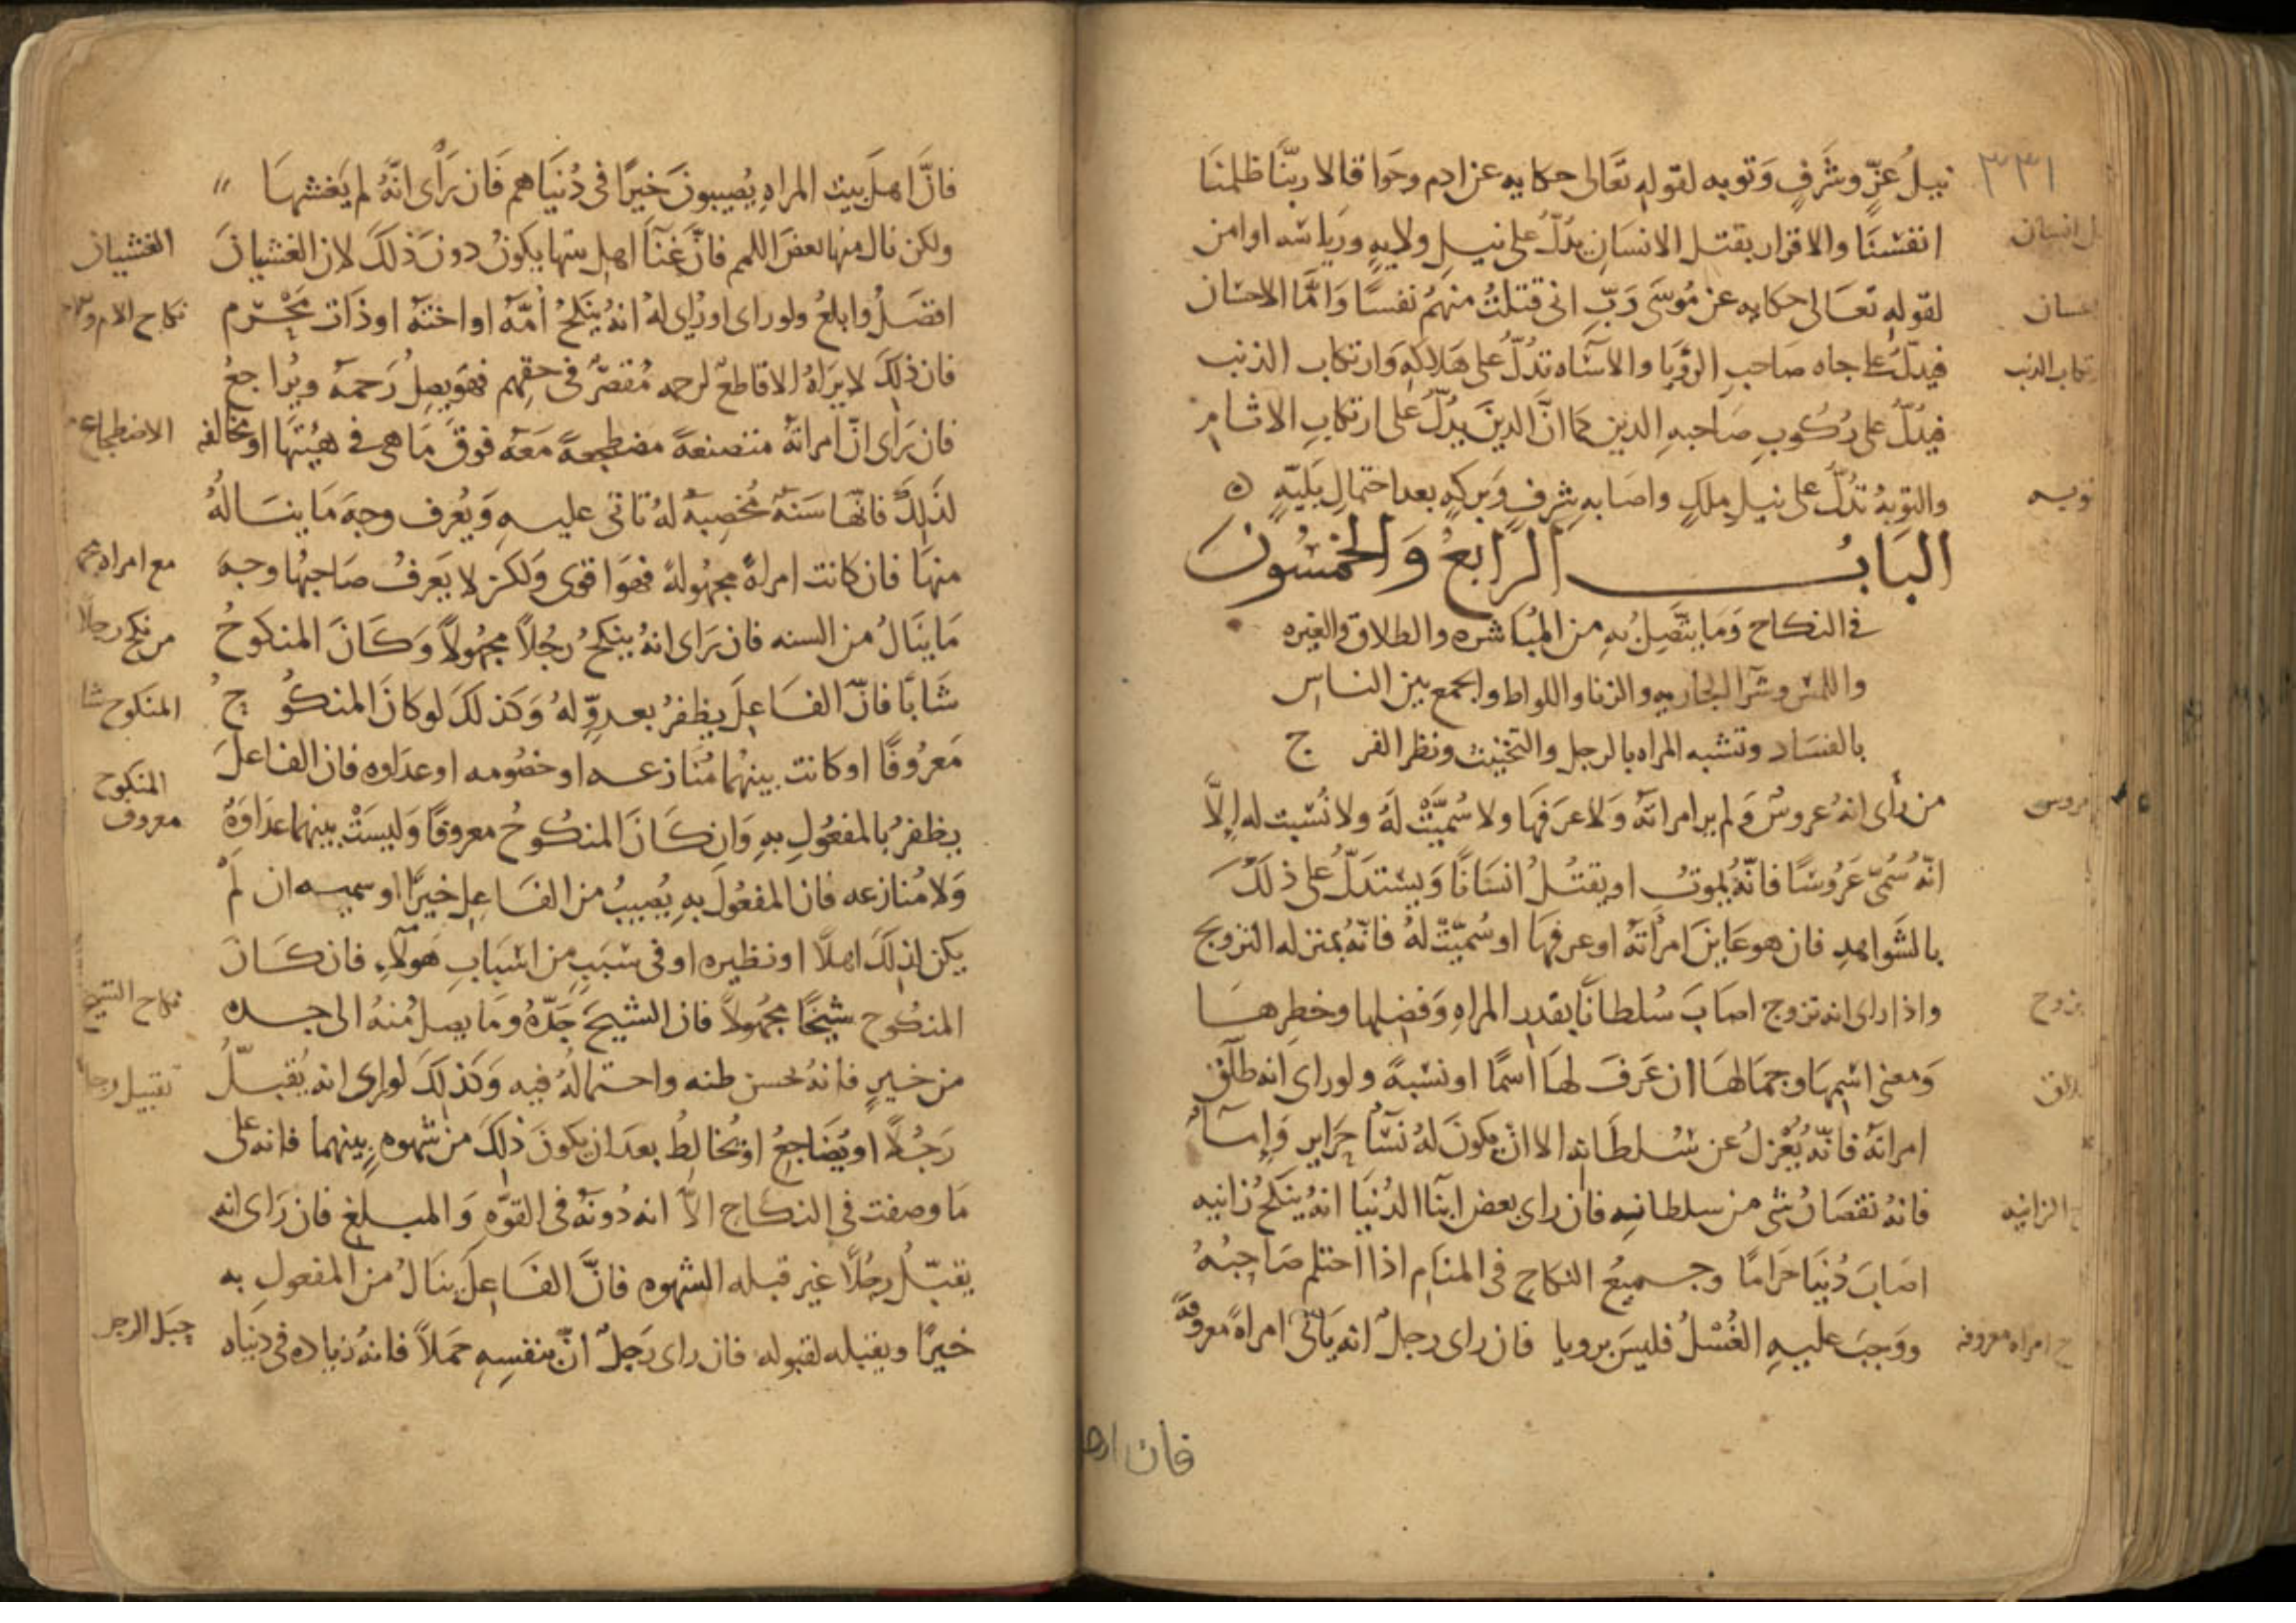 ٣٣١
نيل عزّ وشرف وتوبه لقوله تعالى حكايه عن ادم وحوا قالا ربنا ظلمنا
انفسنا والاقرار بقتل الانسان يدلّ على نيل ولايه ورياسه او امن
لقوله تعالى حكايه عن موسى ربّ انى قتلت منهم نفسا وامّا الاحسان
فيدلّ على جاه صاحب الرؤيا والاساه تدلّ على هلاكه وارتكاب الذنب
فيدلّ على ركوب صاحبه الدين كما انّ الدين يدلّ على ارتكاب الاثام
والتوبة تدلّ على نيل ملك واصابه شرف وبركه بعد احتمال بليّه ه
الباب الرابع والخمسون
فى النكاح وما يتصل به من المباشره والطلاق والغيره
واللمس وشرا الجاريه والزنا واللواط والجمع بين الناس
بالفساد وتشبه المراه بالرجل والتخنيث ونظر الفرج
من رأى انه عروس ولم ير امراته ولا عرفها ولا سُمّيت له ولا نُسبت له إلّا
انّه سُمّى عروسًا فانّه يموت او يقتل انسانا ويستدلّ على ذلك
بالشواهد فان هو عاين امراته او عرفها او سُميّت له فانّه بمنزله التزويج
واذا راى انه تزوج اصاب سلطانا بقدر المراه وفضلها وخطرها
ومعنى اسمها وجمالها ان عرف لها اسمًا او نسبةً ولو راى انه طلّق
امراته فانّه يُعزل عن سلطانه الا ان يكون له نسآ حراير وإمآ
فانه نقصان شى من سلطانه فان راى بعض ابنآ الدنيا انه ينكح زانيه
اصاب دنيا حرامًا وجميع النكاح فى المنام اذا احتلم صاحبه
ووجب عليه الغُسل فليس برويا فان راى رجل انه ياتى امراةً معروفةً
انسان
ارتكاب الذنب
توبه
عروس
الزانيه
امراه معروفه
فان
فانّ اهل بيت المراه يصيبون خيرًا فى دنياهم فان رأى انّه لم يغشها
ولكن نال منها بعض اللمم فانّ غنآ اهل بيتها يكون دون ذلك لان الغشيان
افضل وابلغ ولو راى او رُاى له انه ينكح أمّه او اخته او ذات محرم
فان ذلك لا يراه الا قاطع لرحمه مُقصّر فى حقهم فهو يصل رحمه ويراجع
فان راى انّ امراته متصنعةً مضطجعةً معه فوق ما هى فى هيئتها او مخالفه
لذلك فانّها سنة مخصبة له تاتى عليه ويعرف وجه ما يناله
منها فان كانت امراةً مجهولةً فهو اقوى ولكن لا يعرف صاحبها وجه
ما ينال من السنه فان راى انه ينكح رجُلاً مجهولاً وكان المنكوح
شابّا فانّ الفاعل يظفر بعدوّ له وكذلك لو كان المنكوح
معروفًا او كانت بينهما منازعه او خصومه او عداوه فان الفاعل
يظفر بالمفعول به وان كان المنكوح معروفًا وليست بينهما عداوة
ولا منازعه فان المفعول به يصيب من الفاعل خيرًا او سميه ان لم
يكن لذلك اهلاً او نظيره او فى سبب من اسباب هولاء فان كان
المنكوح شيخًا مجهولاً فان الشيخ جَدّه وما يصل منه الى جده
من خير فانه لحسن ظنه واحتماله فيه وكذلك لو راى انه يقبّل
رجلاً او يُضاجع او يخالط بعد ان يكون ذلك من شهوه بينهما فانه على
ما وصفت فى النكاح الّا انه دونه فى القوّه والمبلغ فان راى انه
يقبّل رجُلاً غير قبله الشهوه فانّ الفاعل ينال من المفعول به
خيرًا ويقبله لقبوله فان راى رجل انّ بنفسه حملاً فانه زياده فى دنياه
الغشيان
نكاح الام
الاضطجاع
مع امراه
من نكح رجلا
المنكوح شابا
المنكوح
معروف
نكاح الشيخ
تقبيل رجل
حبل الرجل